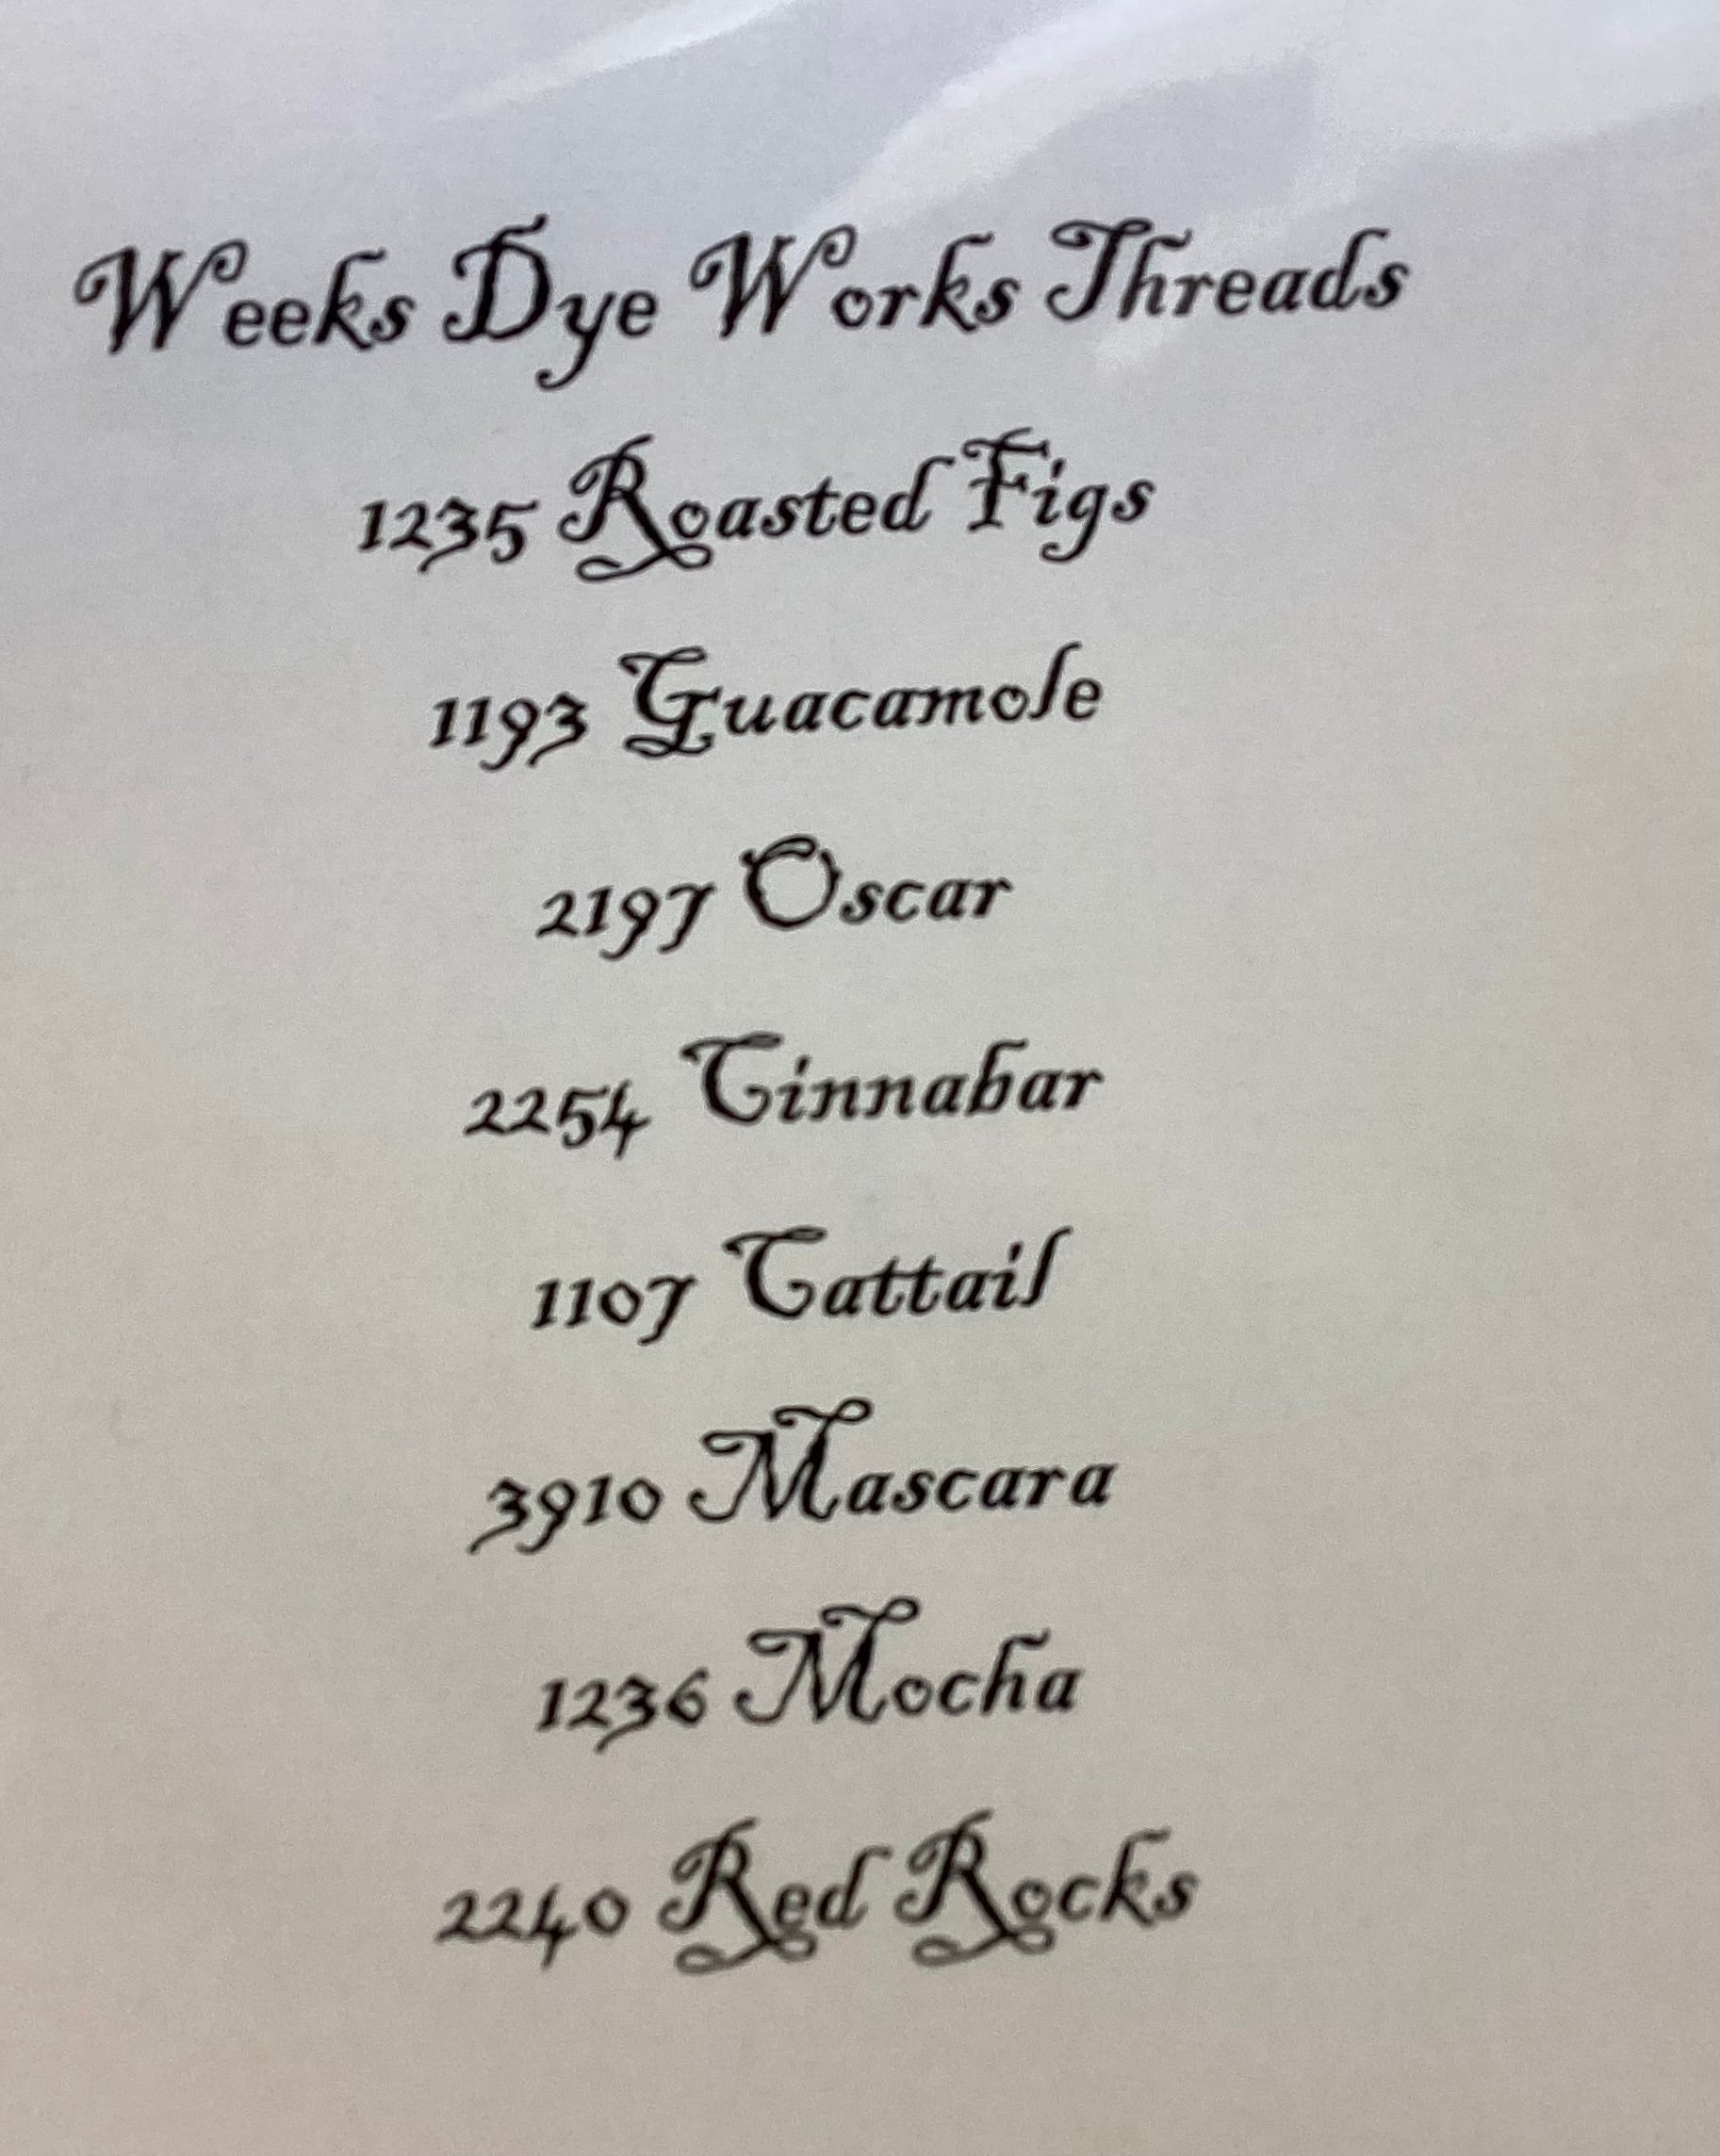 Weeks Dye Works Threads
1235 Roasted Figs
1193 Guacamole
2197 Oscar
2254 Cinnabar
1107 Cattail
3910 Mascara
1236 Mocha
2240 Red Rocks